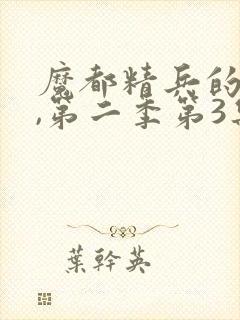 魔都精兵的
,第二季第3
葉幹英